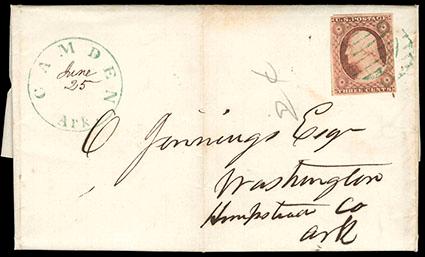 CAMDEN
June
25
Ark
U.S. POSTAGE
THREE CENTS
O Jennings Esqr
Washington
Hempstead Co
Ark